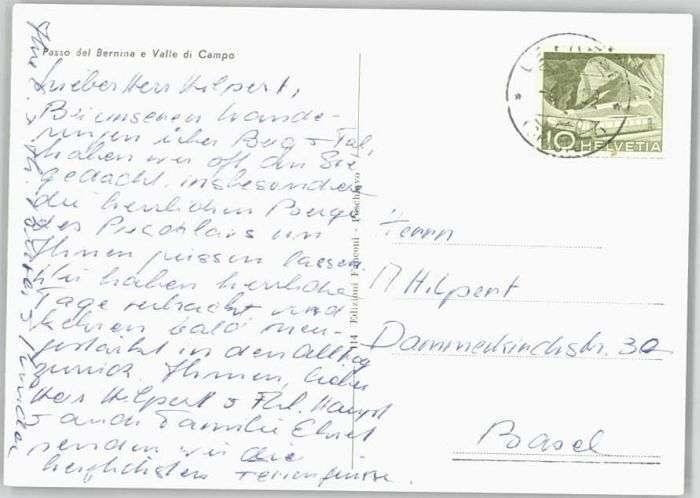 Passo del Bernina e Valle di Campo
Lieber Herr Hilpert,
Bei unseren Wande-
rungen über Berg + Tal,
haben wir oft an Sie
gedacht insbesondere
die herrlichen Berge
des Puschlavs
Ihnen grüssen lassen.
Wir haben herrliche
Tage verbracht und
kehren bald neu-
gestärkt in den Alltag
zurück. Ihnen, lieber
Herr Hilpert + Frl. Haupt
+ auch Familie Ehret
senden wir die
herzlichsten Feriengrüsse.
Ihre
114 Edizioni Fanconi - Poschiavo
10 HELVETIA
Herrn
Hilpert
Dammerkirchstr. 30
Basel